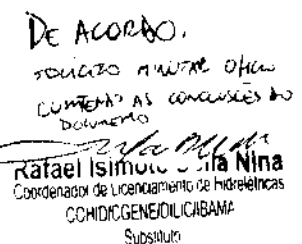 DE ACORDO.
SOLICITO MINUTAR OFÍCIO
CONTENDO AS CONCLUSÕES DO
DOCUMENTO
Rafael Nina
Coordenador de Licenciamento de Hidrelétricas
COHID/CGENE/DILIC/IBAMA
Substituto